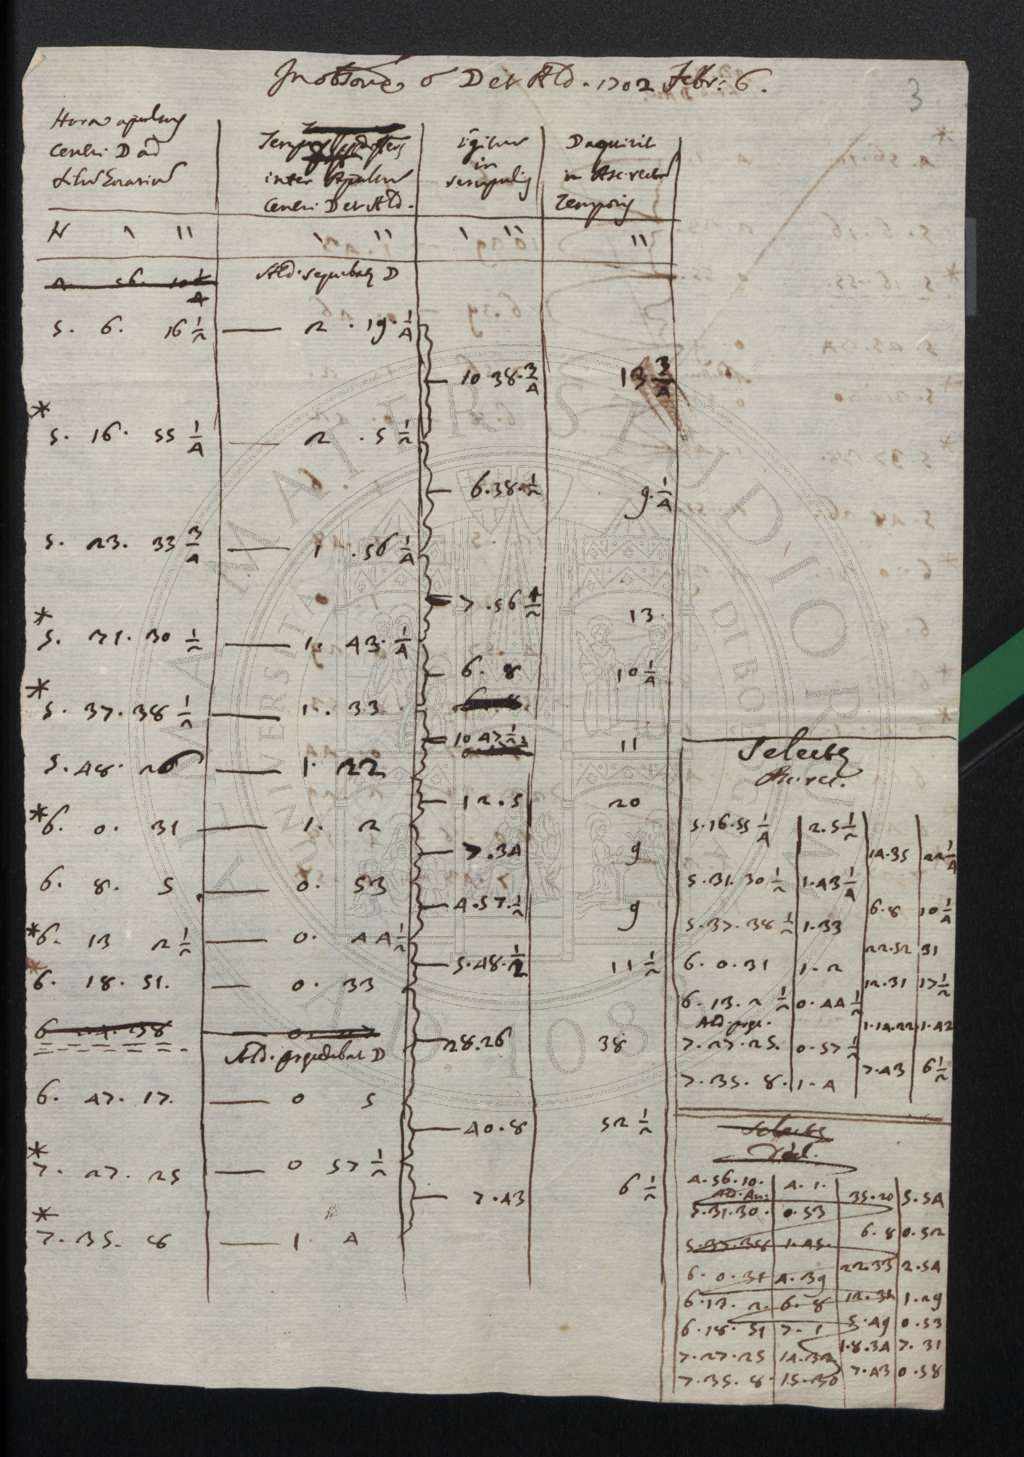 In observe ☌ D et Ald. 1702 Febr. 6.
3
Hora appulsus
Centri D ad
filum horarium
inter Appulsus
Centri D et Ald.
igitur
in
Daquisit
in Ascrect.
Temporis
H ' ''
' ''
' ''
''
Ald. sequebatur D
5. 6. 16 1/2 — 2. 19. 1/4
10 38. 3/4
13 3/4
* 5. 16. 55 1/4 — 2. 5 1/2
6. 38. 1/2
9. 1/4
5. 23. 33 3/4 — 1. 56 1/4
7. 56
13
* 5. 31. 30 1/2 — 1. 43. 1/4
6. 8
10 1/4
* 5. 37. 38 1/2 — 1. 33
10 47 1/2
11
5. 48. 26 — 1. 22
12. 5
20
* 6. 0. 31 — 1. 2
7. 34
9
6. 8. 5 — 0. 53
4. 57. 1/2
9
* 6. 13 2 1/2 — 0. 44 1/2
5. 48. 1/2
11 1/2
* 6. 18. 51. — 0. 33
28. 26
38
Ald. praecedebat D
6. 47. 17. — 0 5
40. 8
52 1/2
* 7. 27. 25 — 0 57 1/2
7. 43
6 1/2
* 7. 35. 8 — 1. 4
Selectae
Ascrect.
5. 16. 55 1/4 2. 5 1/2
14. 35 22 1/4
5. 31. 30 1/2 1. 43 1/4
6. 8 10 1/4
5. 37. 38 1/2 1. 33
22. 52 31
6. 0. 31 1. 2
12. 31 17 1/2
6. 13. 2 1/2 0. 44 1/2
1. 14. 22 1. 42
7. 27. 25. 0. 57 1/2
7. 43 6 1/2
7. 35. 8. 1. 4
Selectae
Decl.
4. 56. 10. 4. 1.
35. 20 5. 54
5. 31. 30. 0. 53
6. 8 0. 52
5. 37. 38 1. 45.
22. 33 2. 54
6. 0. 31 4. 39
12. 31 1. 29
6. 13. 2. 6. 8
5. 49 0. 53
6. 18. 51 7. 1
1. 8. 34 7. 31
7. 27. 25 14. 32
7. 43 0. 58
7. 35. 8. 15. 30
ALMA MATER STUDIORUM
UNIVERSITÀ DI BOLOGNA
A.D. 1088